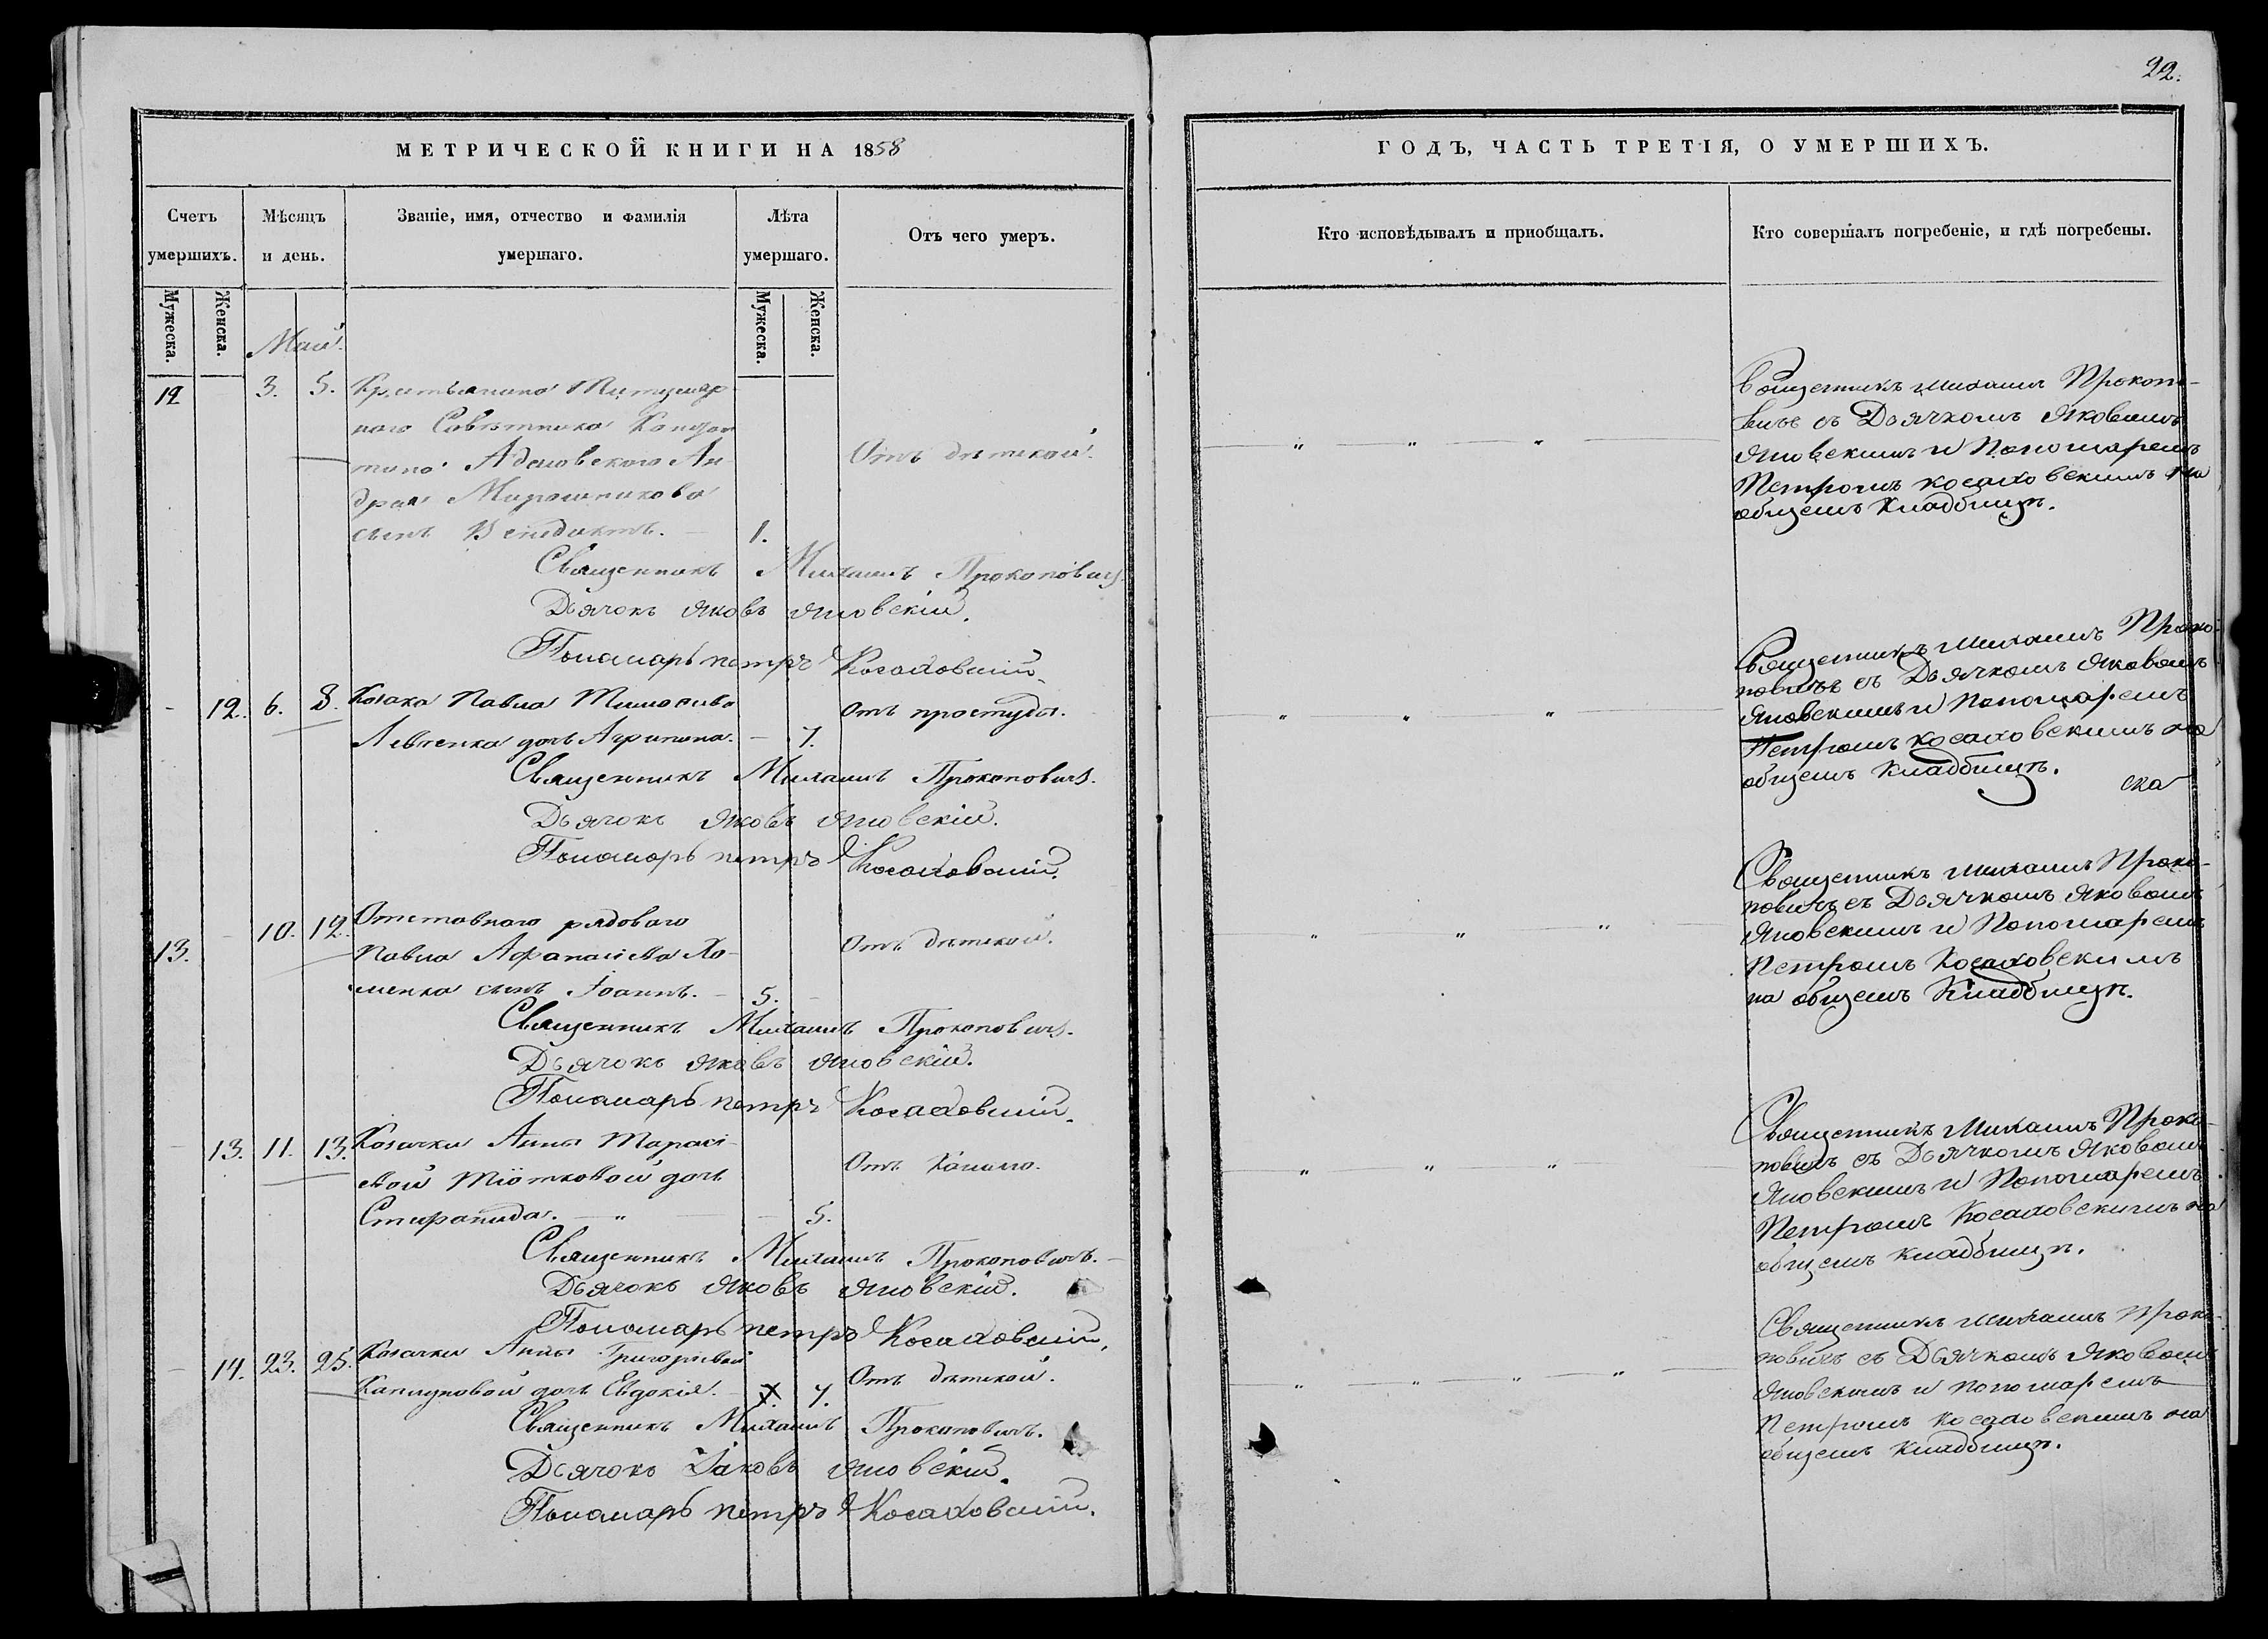 22.
МЕТРИЧЕСКОЙ КНИГИ НА 1858
ГОДЪ, ЧАСТЬ ТРЕТІЯ, О УМЕРШИХЪ.
Счетъ умершихъ.
Мѣсяцъ и день.
Званіе, имя, отчество и фамилія умершаго.
Лѣта умершаго.
Отъ чего умеръ.
Кто исповѣдывалъ и приобщалъ.
Кто совершалъ погребеніе, и гдѣ погребены.
Мужеска.
Женска.
Мужеска.
Женска.
Май.
12 3. 5. Крестьянина Титуляр
наго Совѣтника
Ан
дрея Мирошникова
сынъ Венедиктъ. 1.
Отъ дѣтской.
Священникъ Михаилъ Прокопо-
вичъ съ Дьячкомъ Яковомъ
Яновскимъ и Пономаремъ
Петромъ Косаховскимъ на
общемъ Кладбищѣ.
Священникъ Михаилъ Прокоповичъ.
Дьячокъ Яковъ Яновскій.
Пономарь петръ Косаховскій.
12. 6. 8. Козака Павла Тимофиева
Левченка дочь Агрипина. 7.
Отъ простуды.
Священникъ Михаилъ Проко-
повичъ съ Дьячкомъ Яковомъ
Яновскимъ и Пономаремъ
Петромъ Косаховскимъ на
общемъ Кладбищѣ.
ска
Священникъ Михаилъ Прокоповичъ.
Дьячокъ Яковъ Яновскій.
Пономарь петръ Косаховскій.
13. 10. 12. Отставнаго рядоваго
Павла Афанасіева Хо-
менка сынъ Іоаннъ. 5.
Отъ дѣтской.
Священникъ Михаилъ Проко-
повичъ съ Дьячкомъ Яковомъ
Яновскимъ и Пономаремъ
Петромъ Косаховскимъ
на общемъ Кладбищѣ.
Священникъ Михаилъ Прокоповичъ.
Дьячокъ Яковъ Яновскій.
Пономарь петръ Косаховскій.
13. 11. 13. Козачки Анны Тарасі-
евой Тіотковой дочь
Стиранида. 5.
Отъ Кашлю.
Священникъ Михаилъ Проко-
повичъ съ Дьячкомъ Яковомъ
Яновскимъ и Пономаремъ
Петромъ Косаховскимъ на
общемъ кладбищѣ.
Священникъ Михаилъ Прокоповичъ.
Дьячокъ Яковъ Яновскій.
Пономарь петръ Косаховскій.
14. 23. 25. Козачки Анны Григоріевой
дочь Евдокія. 7.
Отъ дѣтской.
Священникъ Михаилъ Проко-
повичъ съ Дьячкомъ Яковомъ
Яновскимъ и пономаремъ
Петромъ Косаховскимъ на
общемъ кладбищѣ.
Священникъ Михаилъ Прокоповичъ.
Дьячокъ Іаковъ Яновскій.
Пономарь петръ Косаховскій.